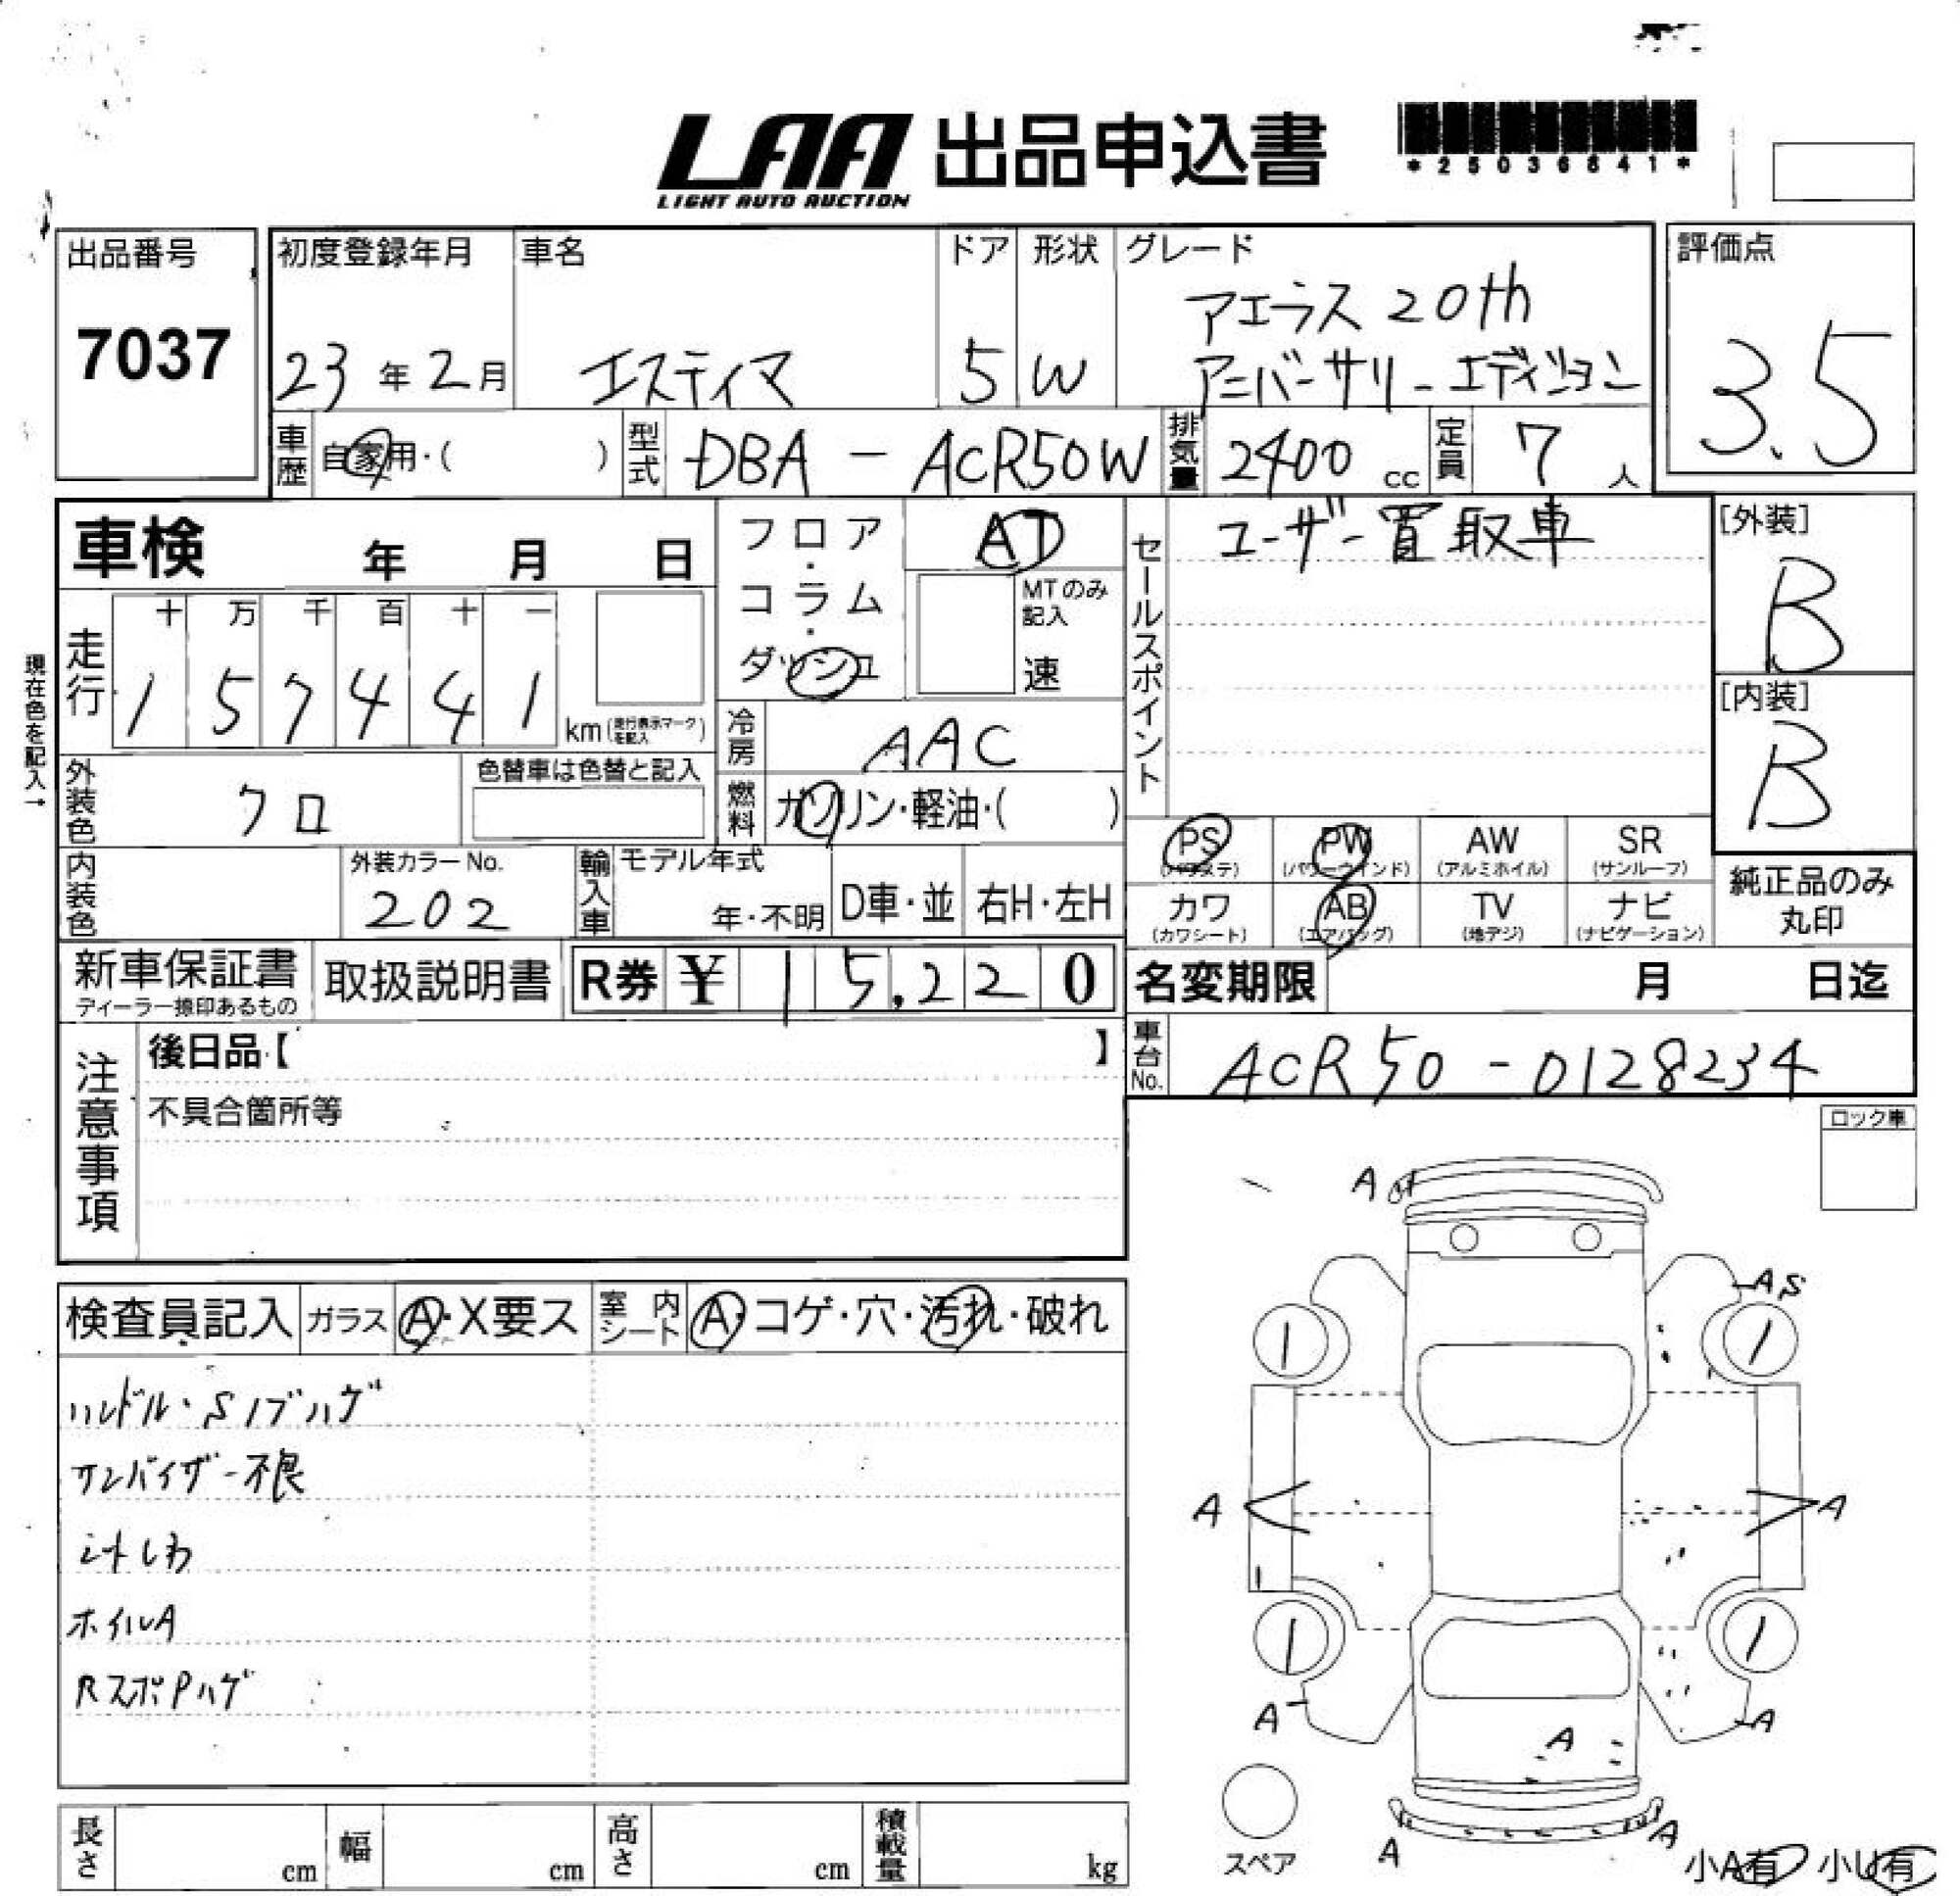 LAA 出品申込書
LIGHT AUTO AUCTION
*25036841*
出品番号
7037
初度登録年月
23年2月
車名
エスティマ
ドア
5
形状
W
グレード
アエラス 20th
アニバーサリーエディション
評価点
3.5
車歴
自家用・( )
型式
DBA - ACR50W
排気量
2400 cc
定員
7人
車検 年 月 日
フロア・コラム・ダッシュ
AT
MTのみ記入
速
セールスポイント
ユーザー買取車
[外装]
B
[内装]
B
現在色を記入→
走行
十 万 千 百 十 一
1 5 7 4 4 1
km(走行表示マークを記入)
冷房
AAC
外装色
クロ
色替車は色替と記入
燃料
ガソリン・軽油・( )
PS
(パワステ)
PW
(パワーウインド)
AW
(アルミホイル)
SR
(サンルーフ)
カワ
(カワシート)
AB
(エアバッグ)
TV
(地デジ)
ナビ
(ナビゲーション)
純正品のみ
丸印
内装色
外装カラーNo.
202
輸入車
モデル年式
年・不明
D車・並
右H・左H
新車保証書
ディーラー捺印あるもの
取扱説明書
R券 ¥ 15,220
名変期限 月 日迄
車台No.
ACR50-0128234
注意事項
後日品【 】
不具合箇所等
ロック車
検査員記入
ガラス A・X要ス
室内シート A・コゲ・穴・汚れ・破れ
ハンドル・Sノブハゲ
サンバイザー不良
シートしわ
ホイルA
RスポPハゲ
A
AS
A
A
A
A
A
A
A
スペア
小A有 小U有
長さ cm
幅 cm
高さ cm
積載量 kg